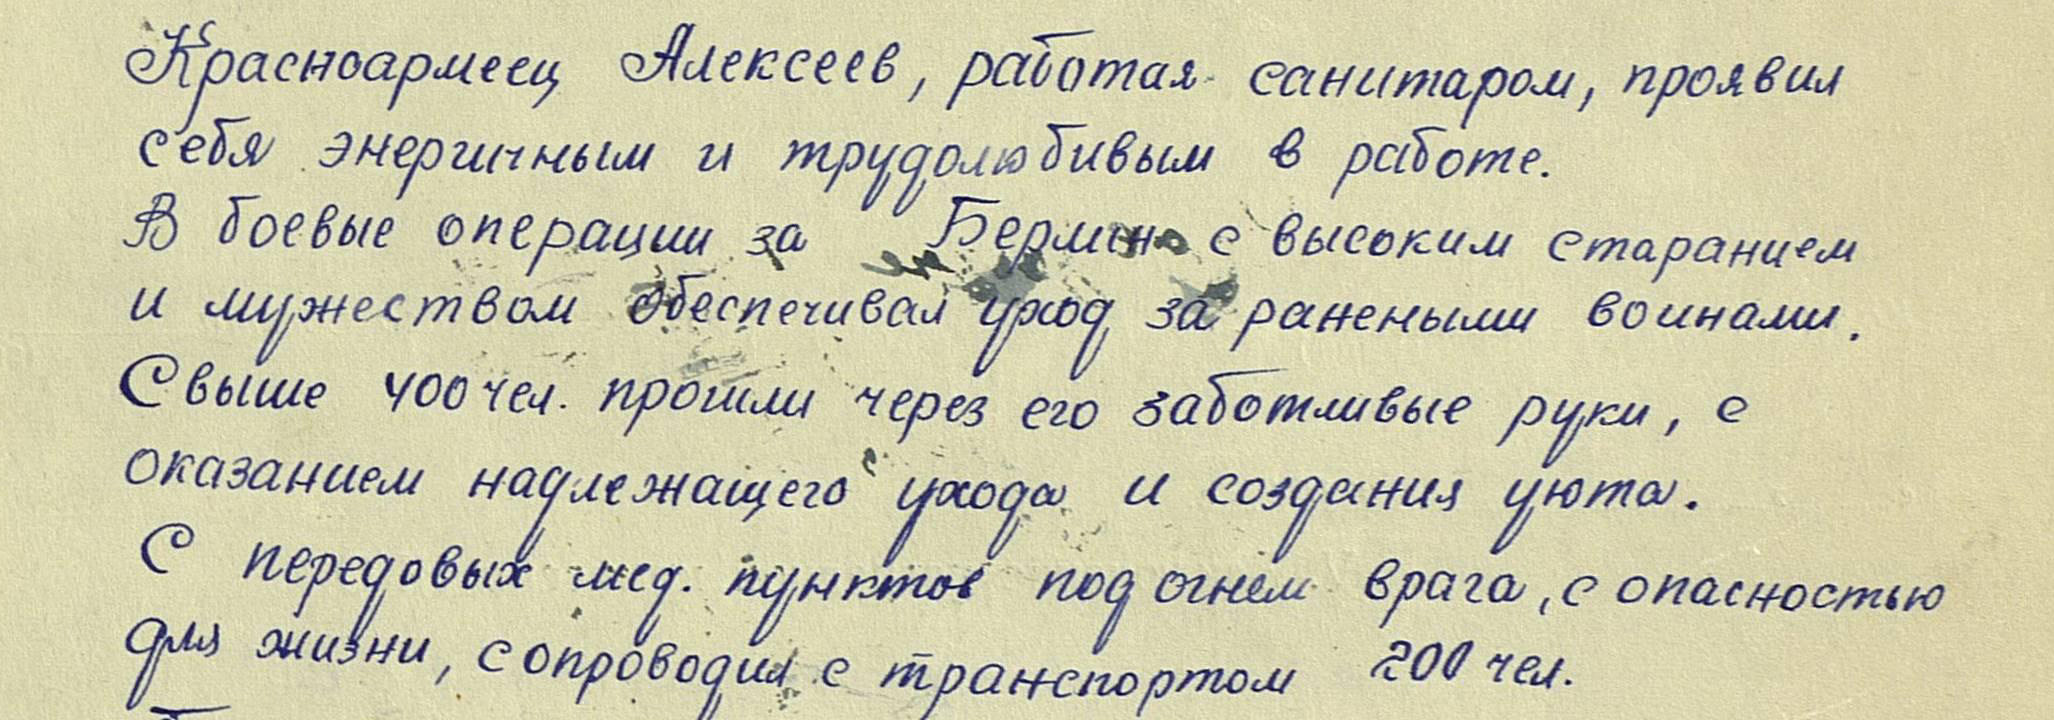 Красноармеец Алексеев, работая санитаром, проявил
себя энергичным и трудолюбивым в работе.
В боевые операции за Берлин с высоким старанием
и мужеством обеспечивал уход за ранеными воинами.
Свыше 400 чел. прошли через его заботливые руки, с
оказанием надлежащего ухода и создания уюта.
С передовых мед. пунктов под огнем врага, с опасностью
для жизни, сопроводил с транспортом 200 чел.